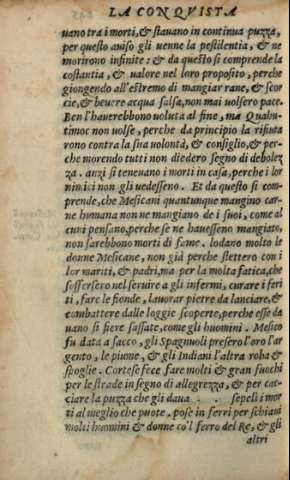 LA CONQVISTA
uano tra i morti, & stauano in continua puzza,
per questo auiso gli uenne la pestilentia, & ne
morirono infinite: & da questo si comprende la
costantia, & ualore nel loro proposito, perche
giongendo all'estremo di mangiar rane, & scor
cie, & beuere acqua salsa, non mai uolsero pace.
Ben l'hauerebbono uoluta al fine, ma Quahu-
timoc non uolse, perche da principio la rifiuta
rono contra la sua volontà, & consiglio, & per-
che morendo tutti non diedero segno di debolez
za. anzi si teneuano i morti in casa, perche i lor
nimici non gli uedesseno. Et da questo si com
prende, che Mesicani quantunque mangino car-
ne humana non ne mangiano de i suoi, come al
cuni pensano, perche se ne hauesseno mangiato,
non sarebbono morti di fame. lodano molto le
donne Mesicane, non già perche stettero con i
lor mariti, & padri, ma per la molta fatica, che
soffersero nel seruire a gli infermi, curare i feri
ti, fare le fionde, lauorar pietre da lanciare, &
combattere dalle loggie scoperte, perche esse da
uano sì fiere sassate, come gli huomini. Mesico
fu data a sacco, gli Spagnuoli presero l'oro l'ar
gento, le piume, & gli Indiani l'altra roba &
spoglie. Cortese fece fare molti & gran fuochi
per le strade in segno di allegrezza, & per cac-
ciare la puzza che gli daua . . sepelì i mor
ti al meglio che puote. pose in ferri per schiaui
molti huomini & donne co'l ferro del Re, & gli
altri